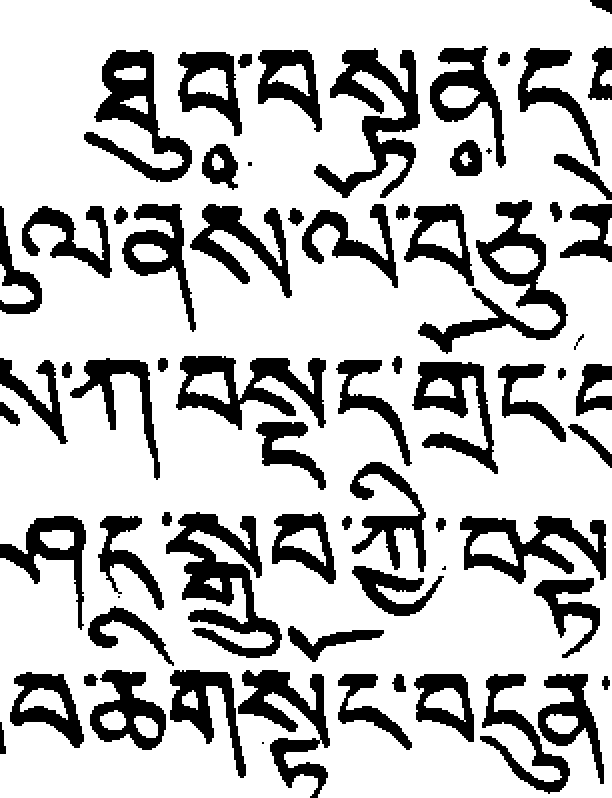 ཐུབ་བསྟན་ད
ུལ་ནས་ལོ་བཅུ་
ས་ཀ་བསྡད་གྲོང་
ཤད་སྒྲུབ་ཀྱི་བསྟ
བ་ཆིག་སྟོང་བདུན